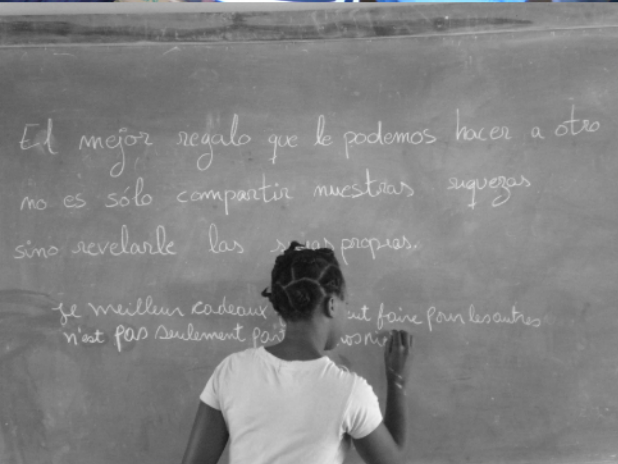 El mejor regalo que le podemos hacer a otro
no es sólo compartir nuestras riquezas
sino revelarle las propias.
Le meilleur cadeaux faire pour les autres
n'est pas seulement